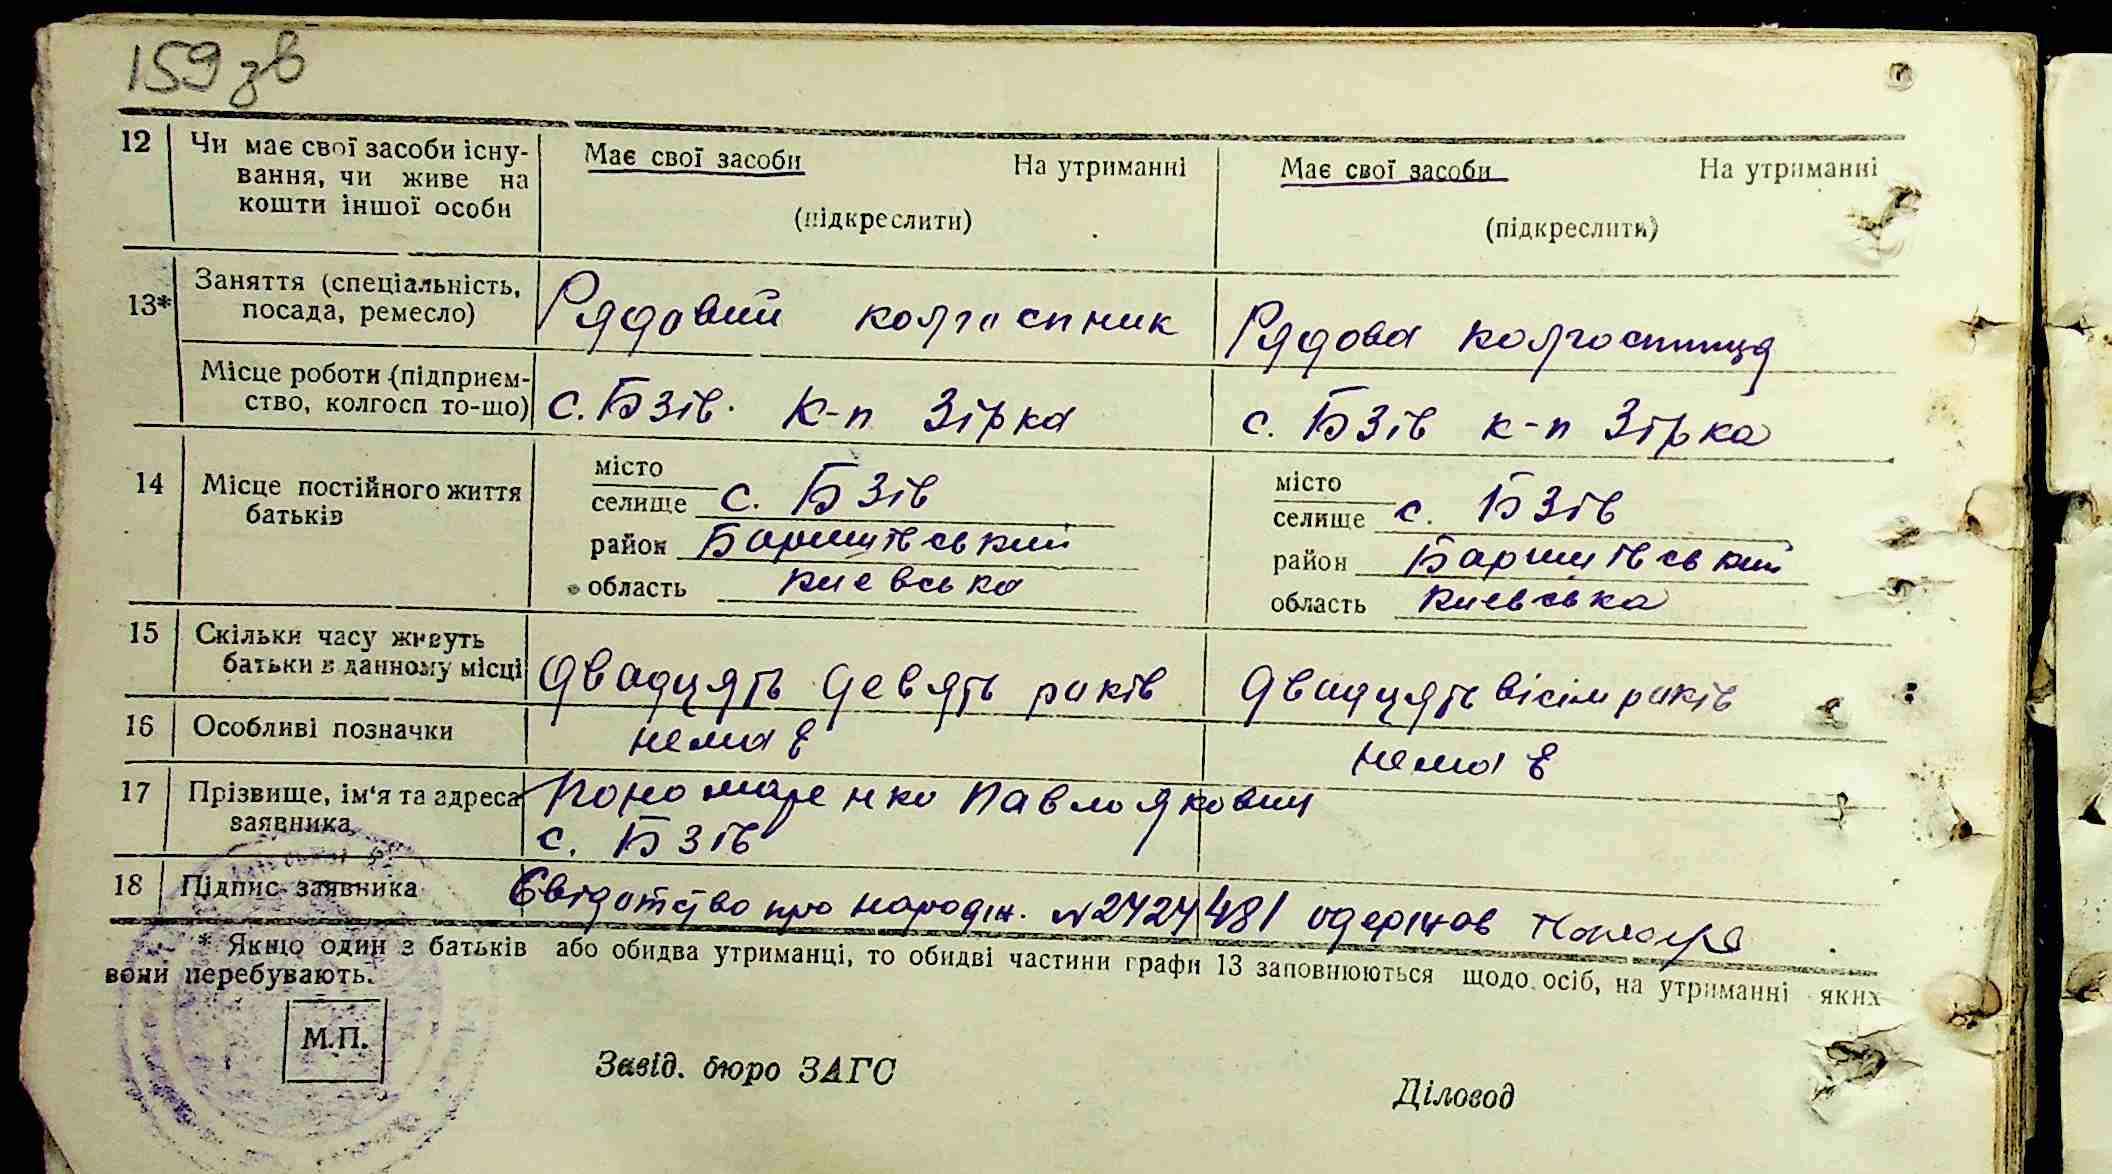 159 зв
12 Чи має свої засоби існу- Має свої засоби На утриманні Має свої засоби На утриманні
вання, чи живе на
кошти іншої особи (підкреслити) (підкреслити)
13* Заняття (спеціальність,
посада, ремесло) Рядовий колгоспник Рядова колгоспниця
Місце роботи (підприєм-
ство, колгосп то-що) с. Бзів. к-п Зірка с. Бзів к-п Зірка
14 Місце постійного життя
батьків
місто місто
селище с. Бзів селище с. Бзів
район Баришівський район Баришівський
область Киевська область Киевська
15 Скільки часу живуть
батьки в данному місці двадцять девять років двадцять вісім років
16 Особливі позначки немає немає
17 Прізвище, ім'я та адреса Пономаренко Павло Якович
заявника с. Бзів
18 Підпис заявника Свідотство про народж. № 2424481 одержав
* Якщо один з батьків або обидва утриманці, то обидві частини графи 13 заповнюються щодо осіб, на утриманні яких
вони перебувають.
М.П.
Завід. бюро ЗАГС
Діловод